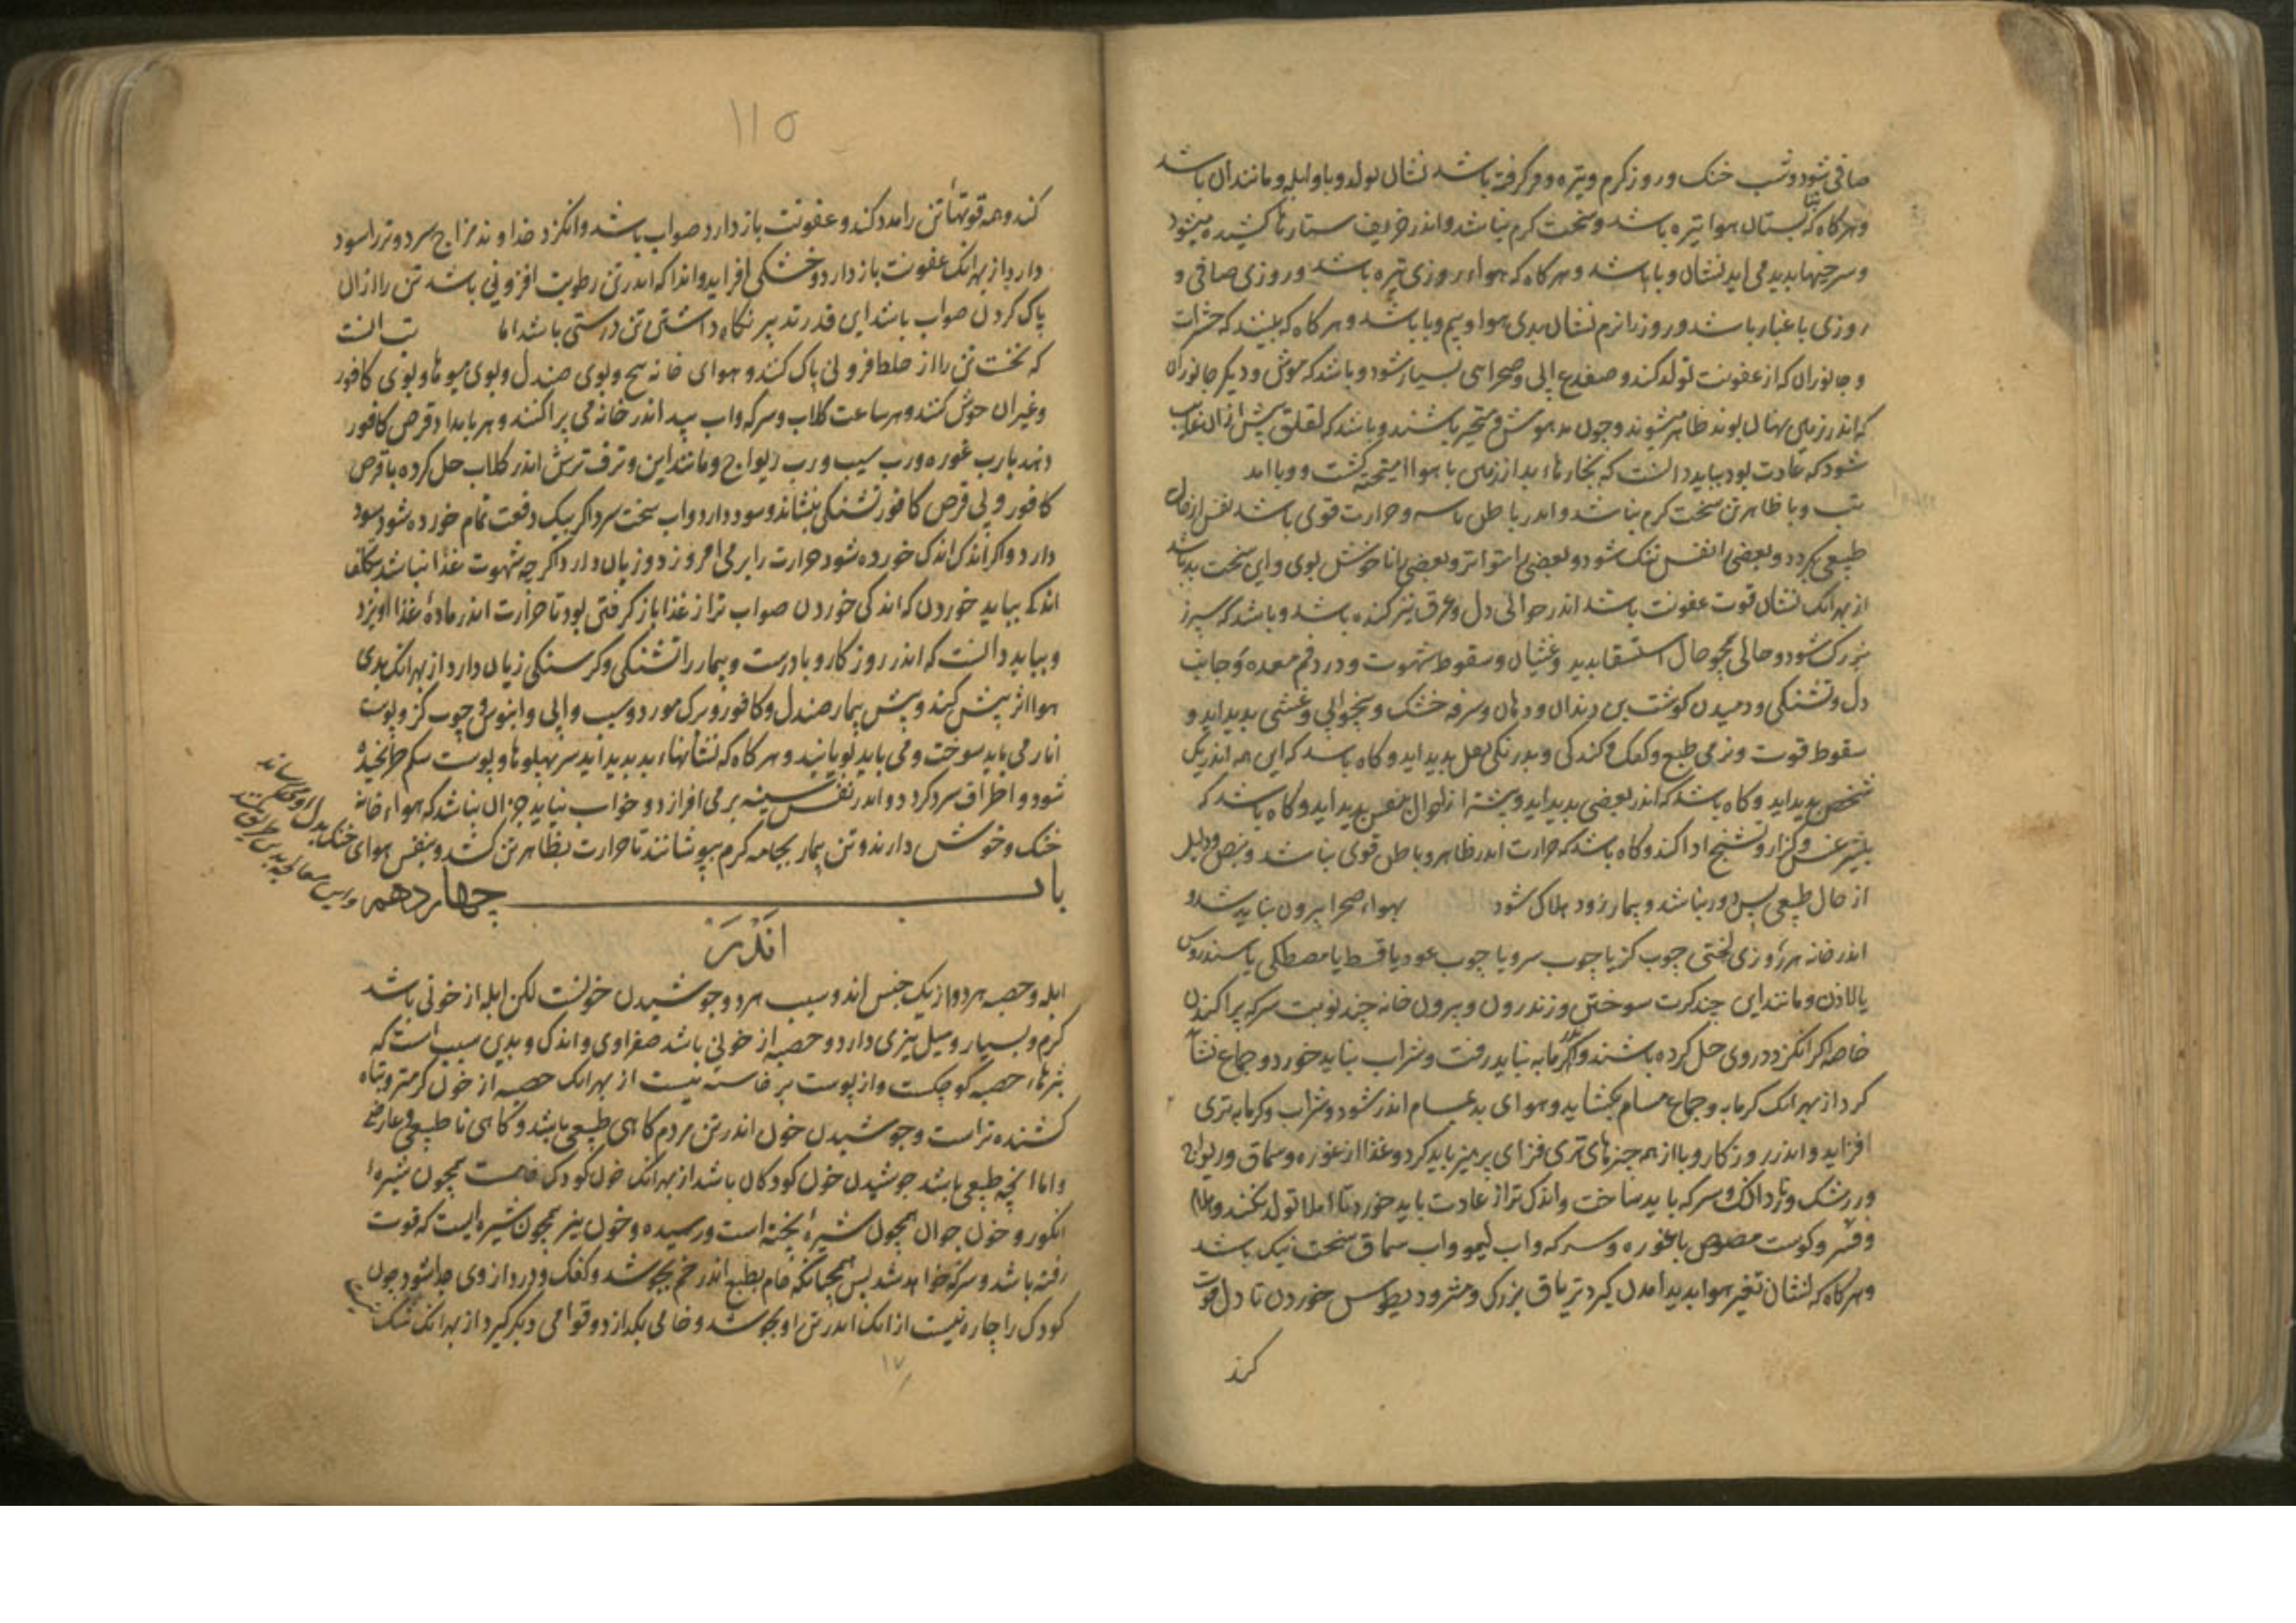 صافی شود و شب خنک و روز کرم و تیره و فرو کرفته باشد نشان تولد وبا و ابله و مانند ان باشد
و هرکاه که تابستان هوا تیره باشد و سخت کرم نباشد و اندر خریف ستارها کشیده میشود
و سرخیها بدید می اید نشان وبا باشد و هرکاه که هواء روزی تیره باشد و روزی صافی و
روزی با غبار باشد و روز نشان بدی هوا و بیم وبا باشد و هرکاه که بینند که حشرات
و جانوران که از عفونت تولد کند و ضفدع ابی و صحرایی بسیار شود و باشد که موش و دیکر جانوران
که اندر زمین پنهان بوند ظاهر میشوند و چون مدهوش و متحیر باشند و باشد که لقلق پیش ازان غایب
شود که عادت بود بباید دانست که بخارهاء بد از زمین با هوا امیخته کشت و وبا امد
تب وبا ظاهر تن سخت کرم نباشد و اندر باطن و حرارت قوی باشد نفس از حال
طبیعی بکردد و بعضی را نفس تنک شود و بعضی را متواتر و بعضی را ناخوش بوی و این سخت بد باشد
از بهر انک نشان قوت عفونت باشد اندر حوالی دل و عرق نیز کنده باشد و باشد که سپرز
بزرک شود و حالی همچو حال استسقا بدید و غثیان و سقوط شهوت و درد فم معده و جانب
دل و تشنکی و دمیدن کوشت بن دندان و دهان و سرفه خشک و بیخوابی و غشی بدید اید و
سقوط قوت و نرمی طبع و کفک و کندکی و بدرنکی ثفل بدید اید و کاه باشد که این همه اندر یک
شخص بدید اید و کاه باشد که اندر بعضی بدید اید و بیشتر ازاحوال بدید اید و کاه باشد که
بلیثرغس و کزاز و تشنج ادا کند و کاه باشد که حرارت اندر ظاهر و باطن قوی نباشد و نبض و دلیل
از حال طبیعی بس دور نباشد و بیمار زود هلاک شود بهواء صحرا بیرون نباید شد و
اندر خانه هر روزی لختی چوب کز یا چوب سرو یا چوب عود یا قسط یا مصطکی یا سندروس
یا لادن و مانند این چند کرت سوختن و زندرون و بیرون خانه چند نوبت سرکه پراکندن
خاصه اکر انکزد در وی حل کرده باشند و کرمابه نباید رفت و شراب نباید خورد و جماع نشاید
کرد از بهر انک کرمابه و جماع مسام بکشاید و هوای بد بمسام اندر شود و شراب و کرمابه تری
افزاید و اندر روزکار وبا از همه چیزهای تری فزای پرهیز باید کرد و غذا از غوره و سماق و ریواج
و زرشک و ناردانک و سرکه باید ساخت و اندک تر از عادت باید خورد تا امتلا تولد نکند
و کوشت مصوص با غوره و سرکه و اب لیمو و اب سماق سخت نیک باشد
و هرکاه که نشان تغیر هوا بدید امدن کیرد تریاق بزرک و مثرودیطوس خوردن تا دل قوت
کند
۱۱۵
کند و همه قوتهاء تن را مدد کند و عفونت باز دارد صواب باشد و انکزد خداوند مزاج سرد و تر را سود
دارد از بهر انک عفونت باز دارد و خشکی افزاید و انرا که اندر تن رطوبت افزونی باشد تن را ازان
پاک کردن صواب باشد این قدر تدبیر نکاه داشتن تن درستی باشد اما انست
که نخست تن را از خلط فزونی پاک کنند و هوای خانه و بوی صندل و بوی میوها و بوی کافور
و غیر ان خوش کنند و هر ساعت کلاب و سرکه و اب بید اندر خانه می پراکنند و هر بامداد قرص کافور
دهند با رب غوره و رب سیب و رب ریواج و مانند این و ترف ترش اندر کلاب حل کرده با قرص
کافور و بی قرص کافور تشنکی بنشاند و سود دارد و اب سخت سرد اکر بیک دفعت تمام خورده شود سود
دارد و اکر اندک اندک خورده شود حرارت را برمی افروزد و زیان دارد اکرچه شهوت غذا نباشد بتکلف
اندکی بباید خوردن که اندکی خوردن صواب تر از غذا باز کرفتن بود تا حرارت اندر مادهٔ غذا اویزد
و بباید دانست که اندر روزکار وبا درست و بیمار را تشنکی و کرسنکی زیان دارد از بهر انک بدی
هوا اثر بیش کند و پیش بیمار صندل و کافور و برک مورد و سیب و ابی و ابنوس و چوب کز و پوست
انار می باید سوخت و می باید بویانید و هرکاه که نشانهاء بد بدید اید سر پهلوها و پوست شکم ترنجیده
شود و اطراف سرد کردد و اندر نفس سینه برمی افرازد و خواب نیاید جز ان نباشد که هواء خانه
خنک و خوش دارند و تن بیمار بجامه کرم بپوشانند تا حرارت بظاهر تن کشد و بنفس هوای
خنک بدل رساند
و این معالجه بدین طریق کنند
باب چهاردهم
اندر
ابله و حصبه هر دو از یک جنس اند و سبب هر دو جوشیدن خونست لکن ابله از خونی باشد
کرم و بسیار و میل بتری دارد و حصبه از خونی باشد صفراوی و اندک و بدین سبب است که
بثرهاء حصبه کوچکست و از پوست برخاسته نیست از بهر انک حصبه از خون کرمتر و تباه
کشنده تر است و جوشیدن خون اندر تن مردم کاهی طبیعی باشد و کاهی ناطبیعی و عارضی
و اما انچه طبیعی باشد جوشیدن خون کودکان باشد از بهر انک خون کودک خامست همچون شیرهٔ
انکور و خون جوان همچون شیرهٔ پخته است و رسیده و خون پیر همچون شیره ایست که قوت
رفته باشد و سرکه خواهد شد پس همچنانکه خام بطبع اندر خم بجوشد و کفک و درد از وی جدا شود خون
کودک را چاره نیست از انک اندر تن او بجوشد و خامی بکدازد و قوامی دیکر کیرد از بهر انک
۱۷